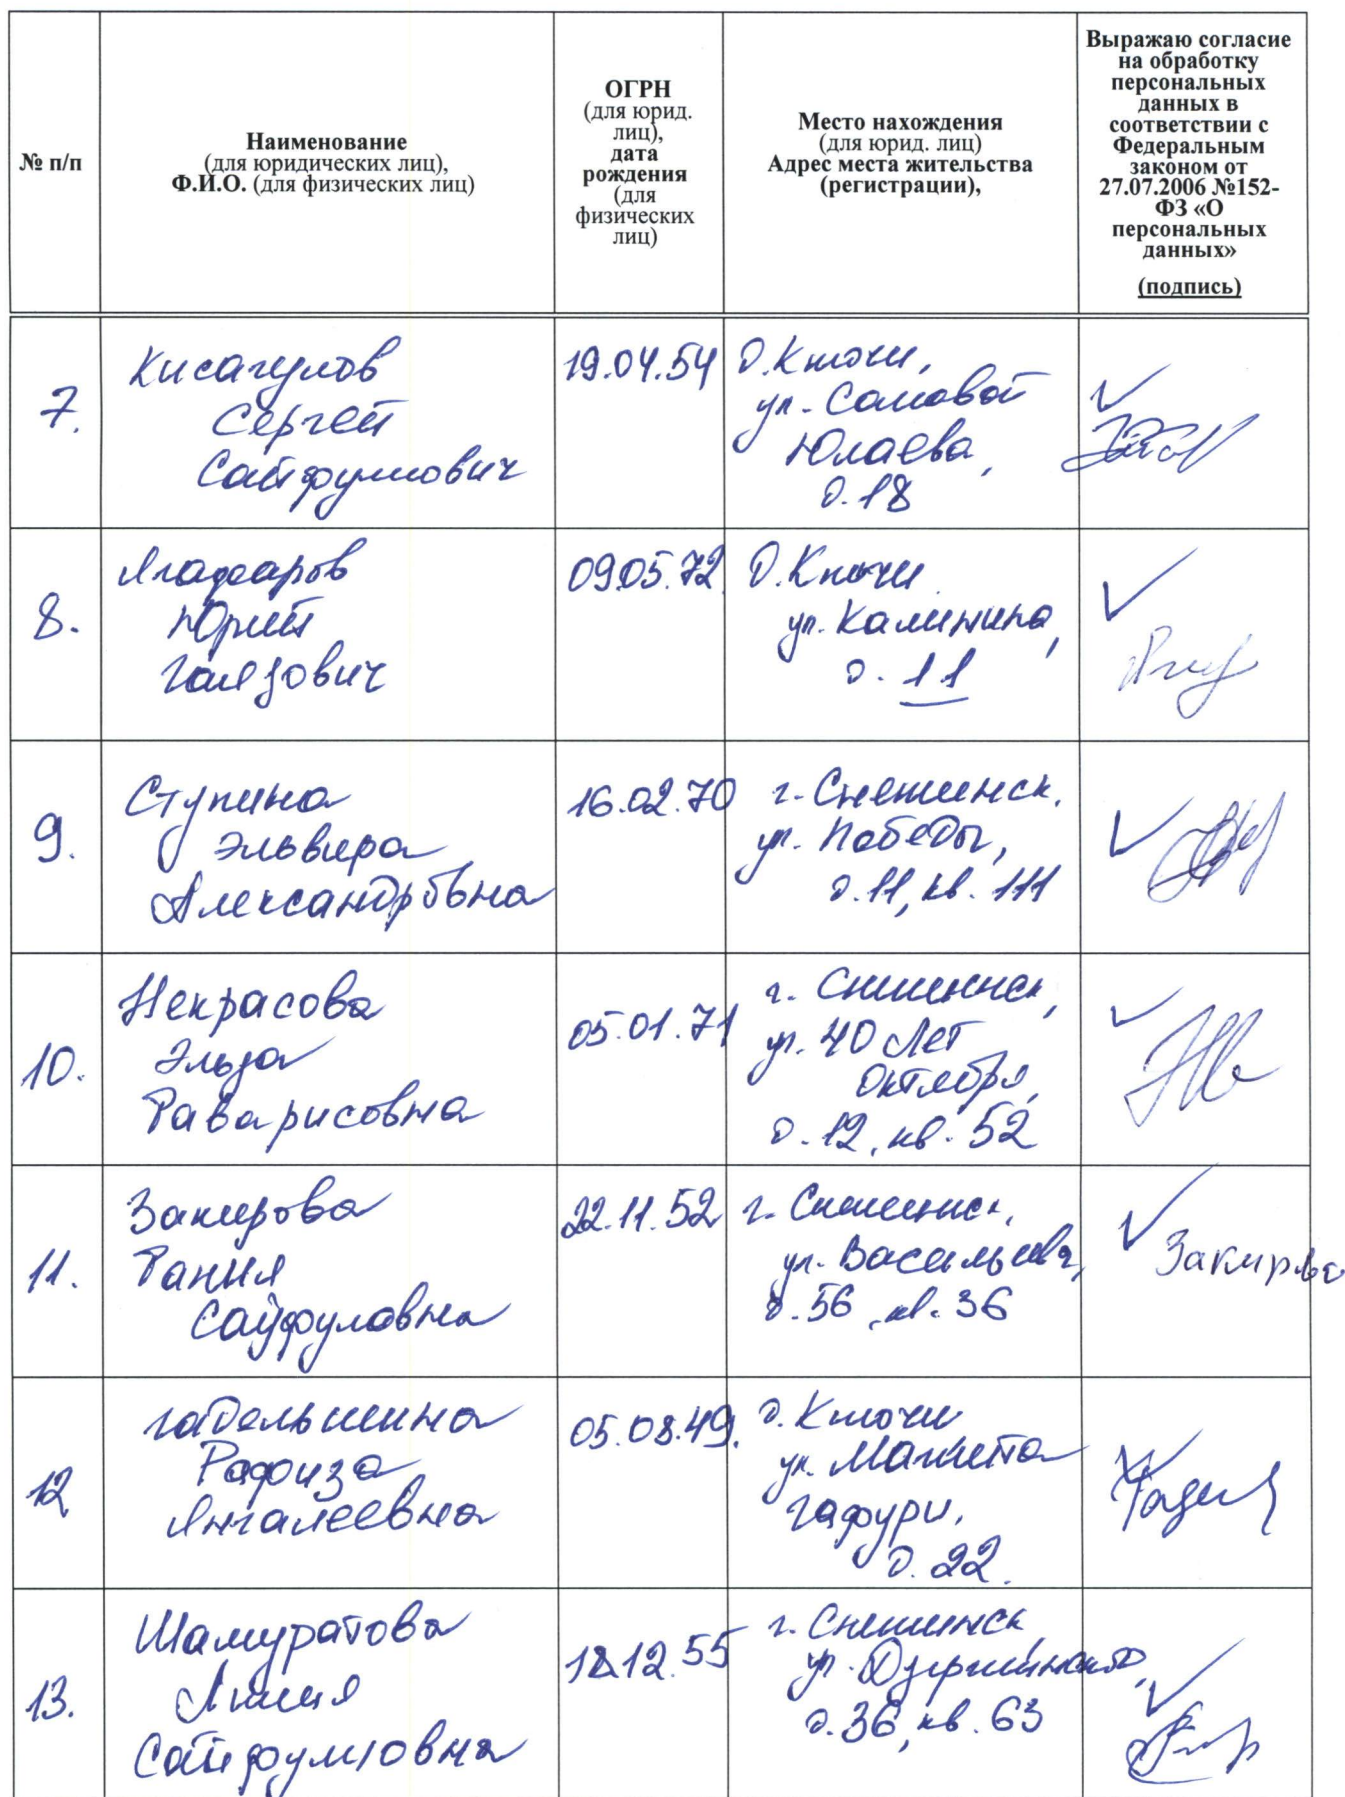 № п/п
Наименование
(для юридических лиц),
Ф.И.О. (для физических лиц)
ОГРН
(для юрид.
лиц),
дата
рождения
(для
физических
лиц)
Место нахождения
(для юрид. лиц)
Адрес места жительства
(регистрации),
Выражаю согласие
на обработку
персональных
данных в
соответствии с
Федеральным
законом от
27.07.2006 №152-
ФЗ «О
персональных
данных»
(подпись)
7.
Кисагулов
Сергей
Сайфуллович
19.04.54
д. Ключи,
ул. Салават
Юлаева,
д. 18
8.
Ягафаров
Юрий
Гаязович
09.05.72
д. Ключи
ул. Калинина,
д. 11
9.
Ступина
Эльвира
Александровна
16.02.70
г. Снежинск,
ул. Победы,
д. 11, кв. 111
10.
Некрасова
Эльза
Раварисовна
05.01.71
г. Снежинск,
ул. 40 Лет
Октября,
д. 12, кв. 52
11.
Закирова
Рания
Сайфуловна
22.11.52
г. Снежинск,
ул. Васильева,
д. 56, кв. 36
Закирова
12
Гадельшина
Рафиза
Янгалеевна
05.08.49.
д. Ключи
ул. Мажита
Гафури,
д. 22.
13.
Шамуратова
Сайфулловна
12.55
г. Снежинск
ул. Дзержинского,
д. 36, кв. 63